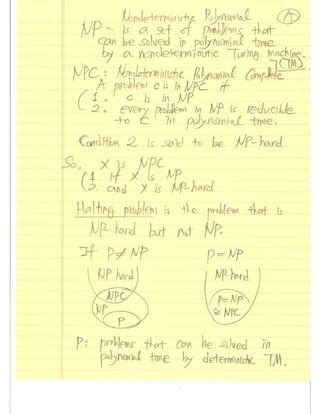 Nondeterministic Polynomial
A
NP ~ is a set of problems that
can be solved in polynomial time
by a nondeterministic Turing machine.
(TM)
NPC: Nondeterministic Polynomial Complete
A problem c is in NPC if
1. c is in NP
2. every problem in NP is reducible
to C in polynomial time.
Condition 2 is said to be NP-hard.
So, X is NPC
1. if X is NP
2. and X is NP-hard
Halting problem is the problem that is
NP-hard but not NP.
If P≠NP P=NP
NP hard NP-hard
NPC P=NP
NP ≅ NPC
P
P: problems that can be solved in
polynomial time by deterministic TM.